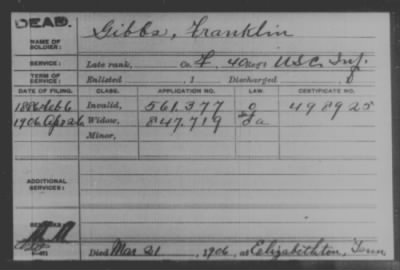 DEAD.
NAME OF SOLDIER: Gibbs, Franklin
SERVICE: Late rank, Co. F, 40 Reg't U.S.C. Inf.
TERM OF SERVICE: Enlisted , 1 Discharged , 1
DATE OF FILING. CLASS. APPLICATION NO. LAW. CERTIFICATE NO.
1886 Invalid, 561.377 498925
1906 Apr 26 Widow, 847.719
Minor,
ADDITIONAL SERVICES:
REMARKS:
Died Mar 21, 1906, at Eelizabethton, Tenn